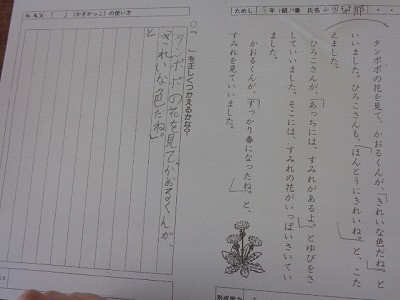 ためし
3年
組
氏名
タンポポの花を見て、かおるくんが、「きれいな色だね。」と
いいました。ひろこさんも、「ほんとうにきれいね。」と、こた
えました。
ひろこさんが、「あっちには、すみれがあるよ。」とゆびをさ
していいました。そこには、すみれの花がいっぱいさいてい
ました。
かおるくんが、「すっかり春になったね。」と、
すみれを見ていいました。
「 」(かぎかっこ)の使い方
○「 」を正しくつかえるかな?
タンポポの花を見て、かおるくんが、
「きれいな色だね。」
と